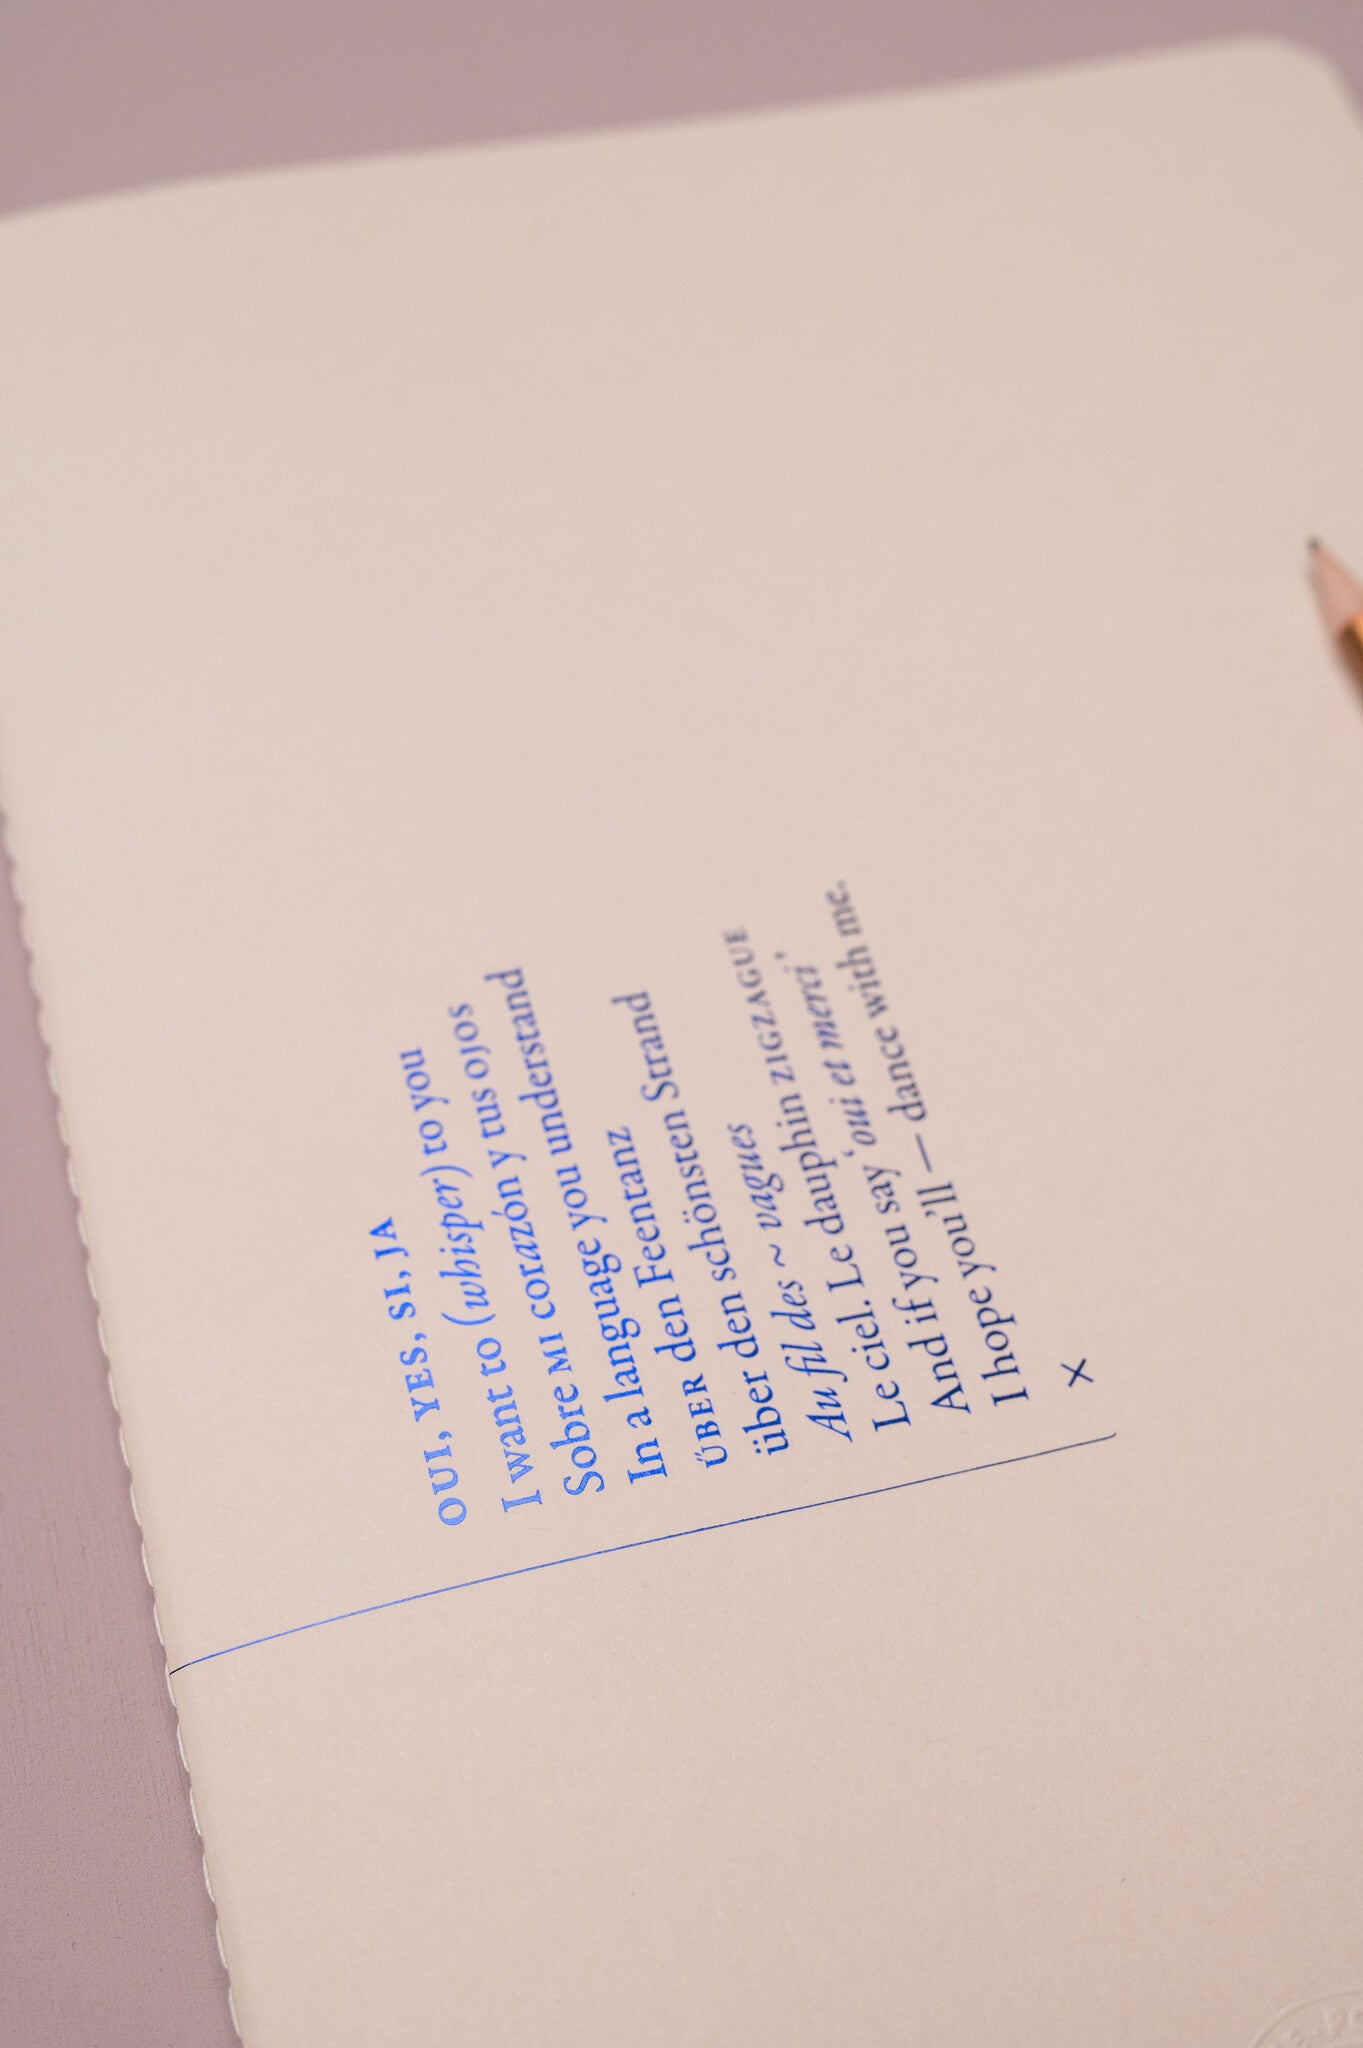 OUI, YES, SI, JA
I want to (whisper) to you
Sobre MI corazón y tus ojos
In a language you understand
ÜBER den Feentanz
über den schönsten Strand
Au fil des ~ vagues
Le ciel. Le dauphin ZIGZAGUE
And if you say ‘oui et merci,’
I hope you’ll — dance with me.
×